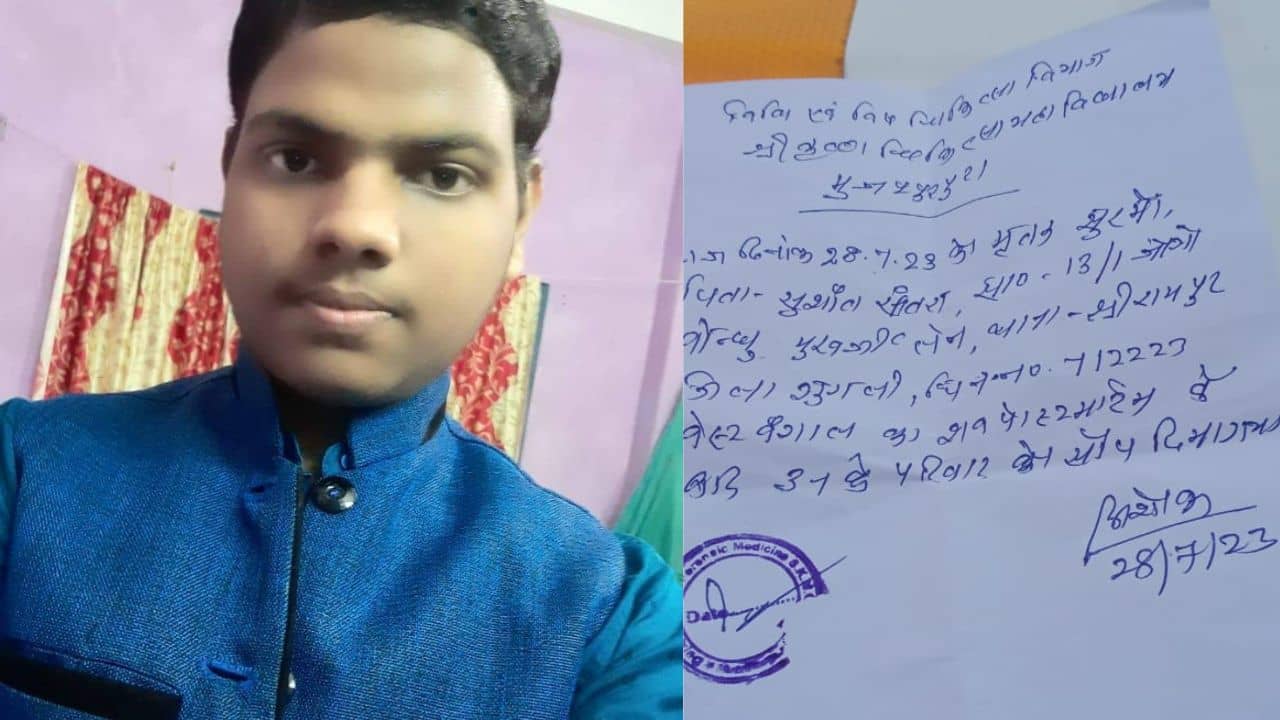 विधि एवं विष चिकित्सा विभाग
श्री कृष्णा चिकित्सा महाविद्यालय
मुजफ्फरपुर।
दिनांक 28.7.23 को मृतक
पिता- सुशांत सांतरा, सा0- 13/1
लेन, थाना-श्रीरामपुर
जिला हुगली, पिन न0. 712223
वेस्ट बंगाल का शव पोस्टमार्टम के
बाद उनके परिवार को सौंप दिया गया
28/7/23
Forensic Medicine S.K.M.
Date